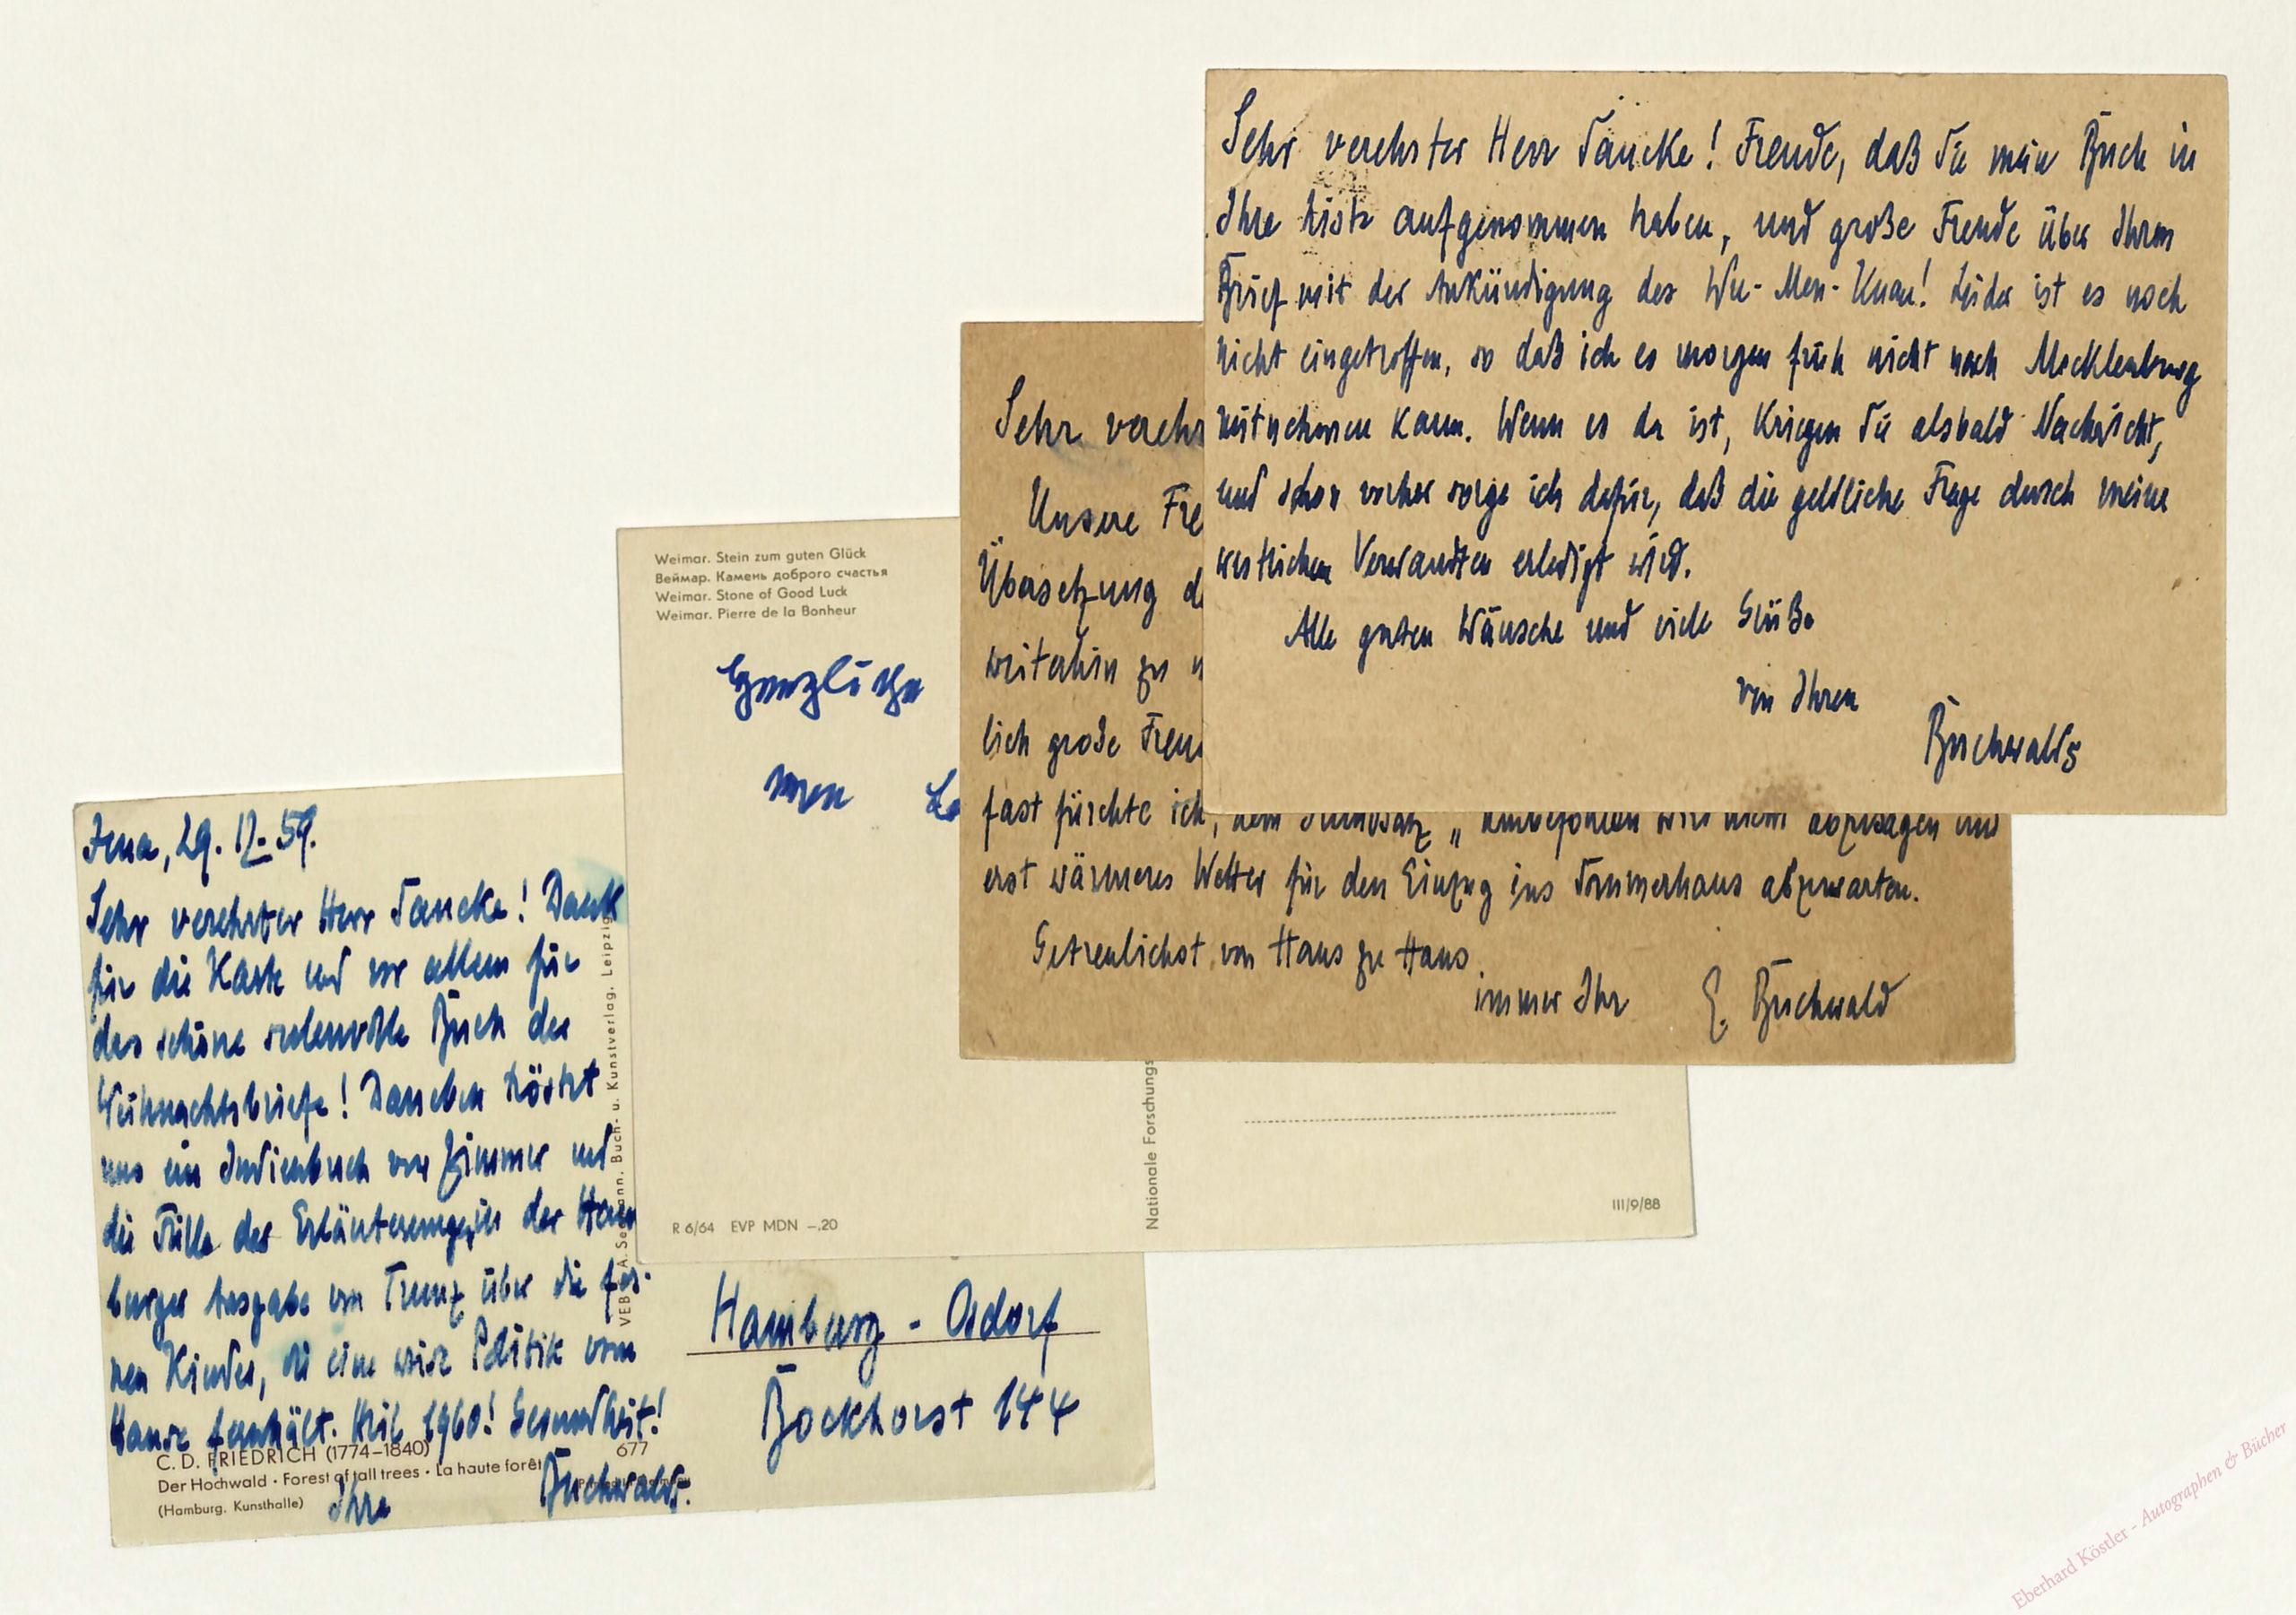 Sehr verehrter Herr Jancke! Freude, daß Sie mein Buch in
Ihre Liste aufgenommen haben, und große Freude über Ihren
Brief mit der Ankündigung des Wu-Men-Kuan! Leider ist es noch
nicht eingetroffen, so daß ich es morgen früh nicht nach Mecklenburg
mitnehmen kann. Wenn es da ist, kriegen Sie alsbald Nachricht,
und schon vorher sorge ich dafür, daß die geldliche Frage durch meine
westlichen Verwandten erledigt wird.
Alle guten Wünsche und viele Grüße
von Ihren
Buchwalds
Sehr verehr
Unsere Fre
Übersetzung d
weiterhin zu
lich große Freu
fast fürchte ich, dem Grundsatz „ abzusagen und
erst wärmeres Wetter für den Einzug ins Sommerhaus abzuwarten.
Getreulichst von Haus zu Haus
immer Ihr E. Buchwald
Weimar. Stein zum guten Glück
Веймар. Камень доброго счастья
Weimar. Stone of Good Luck
Weimar. Pierre de la Bonheur
R 6/64 EVP MDN –,20
Nationale Forschungs
III/9/88
Jena, 29. 12. 59.
Sehr verehrter Herr Jancke! Dank
für die Karte und vor allem für
das schöne seelenvolle Buch der
Weihnachtsbriefe! Daneben tröstet
uns ein Indienbuch von Zimmer und
die Fülle der Erläuterungen in der Ham
burger Ausgabe von Trunz über die fer-
nen Kinder, die eine weise Politik vom
Hause fernhält. Heil 1960! Gesundheit!
Ihre Buchwalds.
C. D. FRIEDRICH (1774–1840) 677
Der Hochwald · Forest of tall trees · La haute forêt
(Hamburg, Kunsthalle)
VEB E. A. Seemann. Buch- u. Kunstverlag. Leipzig
Hamburg - Osdorf
Bockhorst 144
Eberhard Köstler - Autographen & Bücher